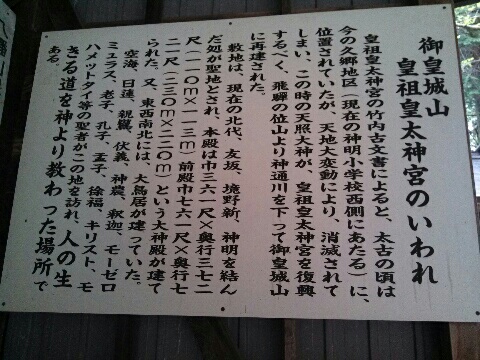 御皇城山
皇祖皇太神宮のいわれ
皇祖皇太神宮の竹内古文書によると、太古の頃は
今の久郷地区(現在の神明小学校西側にあたる)に、
位置されていたが、天地大変動により、消滅されて
しまい、この時の天照大神が、皇祖皇太神宮を復興
するべく、飛騨の位山より神通川を下って御皇城山
に再建された。
敷地は、現在の北代、友坂、境野新、神明を結ん
だ処が聖地とされ、本殿は巾三六一尺×奥行三七二
尺(一一〇m×一一三m)前殿巾七六一尺×奥行七
二一尺(二三〇m×二二〇m)という大神殿が建て
られた。又、東西南北には、大鳥居が建っていた。
空海、日蓮、親鸞、伏義、神農、釈迦、モーゼロ
ミュラス、老子、孔子、孟子、徐福、キリスト、モ
ハメットダイ等の聖者がこの地を訪れ、人の生
きる道を神より教わった場所で
ある。